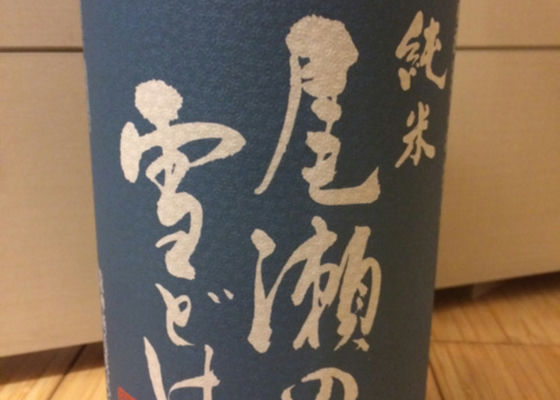 純米
尾瀬の
雪どけ